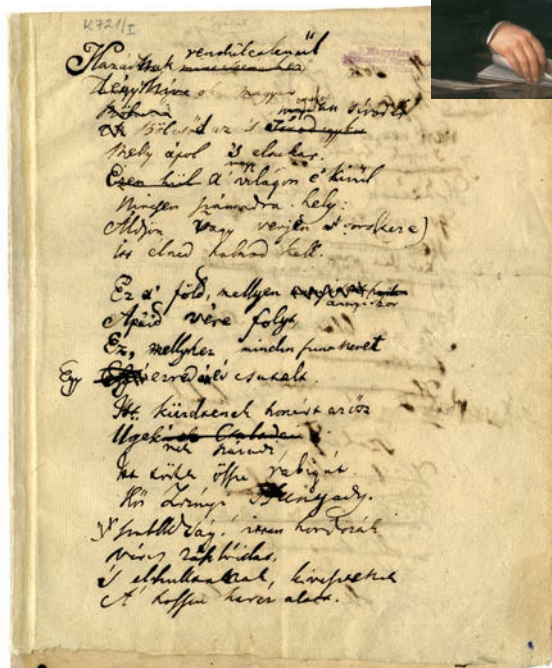 K 721/I
Hazádnak rendületlenül
Légy híve oh magyar
Bölcsőd az is majdan sírod is
Melly ápol is eltakar.
A' nagy világon e' kivül
Nincsen számodra hely:
Áldjon vagy verjen a' sors keze
Itt élned halnod kell.
Ez a' föld, mellyen annyiszor
Apáid vére folyt,
Ez, mellyhez minden
Egy ezredév csatolt.
Itt küzdtenek honért az ősz
Itt össze rabigát
Hős Hunyady.
Szabadság! itten hordozák
véres zászlóidat
's elhulltanak,
A' hosszu harcz alatt.